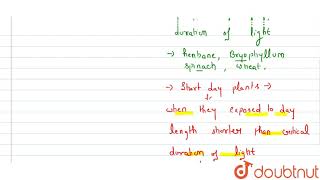 duration of light
→ henbane, Bryophyllum
spinach, wheat.
→ Short day plants →
when they exposed to day
length shorter than critical
duration of light
doubtnut